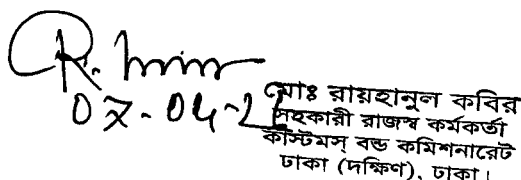 07-04-2
মোঃ রায়হানুল কবির
সহকারী রাজস্ব কর্মকর্তা
কাস্টমস্ বন্ড কমিশনারেট
ঢাকা (দক্ষিণ), ঢাকা।